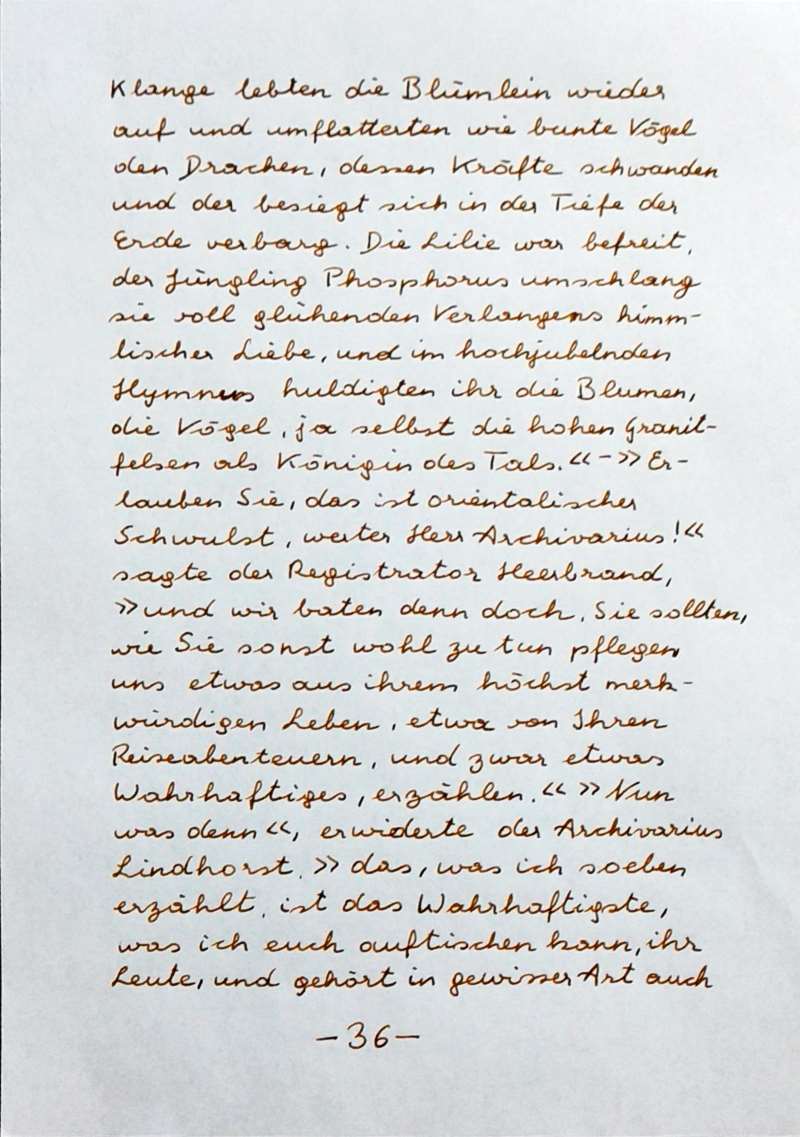 Klange lebten die Blümlein wieder
auf und umflatterten wie bunte Vögel
den Drachen, dessen Kräfte schwanden
und der besiegt sich in der Tiefe der
Erde verbarg. Die Lilie war befreit,
der Jüngling Phosphorus umschlang
sie voll glühenden Verlangens himm-
lischer Liebe, und im hochjubelnden
Hymnus huldigten ihr die Blumen,
die Vögel, ja selbst die hohen Granit-
felsen als Königin des Tals.« - » Er-
lauben Sie, das ist orientalischer
Schwulst, werter Herr Archivarius!«
sagte der Registrator Heerbrand,
»und wir baten denn doch, Sie sollten,
wie Sie sonst wohl zu tun pflegen,
uns etwas aus ihrem höchst merk-
würdigen Leben, etwa von Ihren
Reiseabenteuern, und zwar etwas
Wahrhaftiges, erzählen.« »Nun
was denn«, erwiderte der Archivarius
Lindhorst, »das, was ich soeben
erzählt, ist das Wahrhaftigste,
was ich euch auftischen kann, ihr
Leute, und gehört in gewisser Art auch
-36-